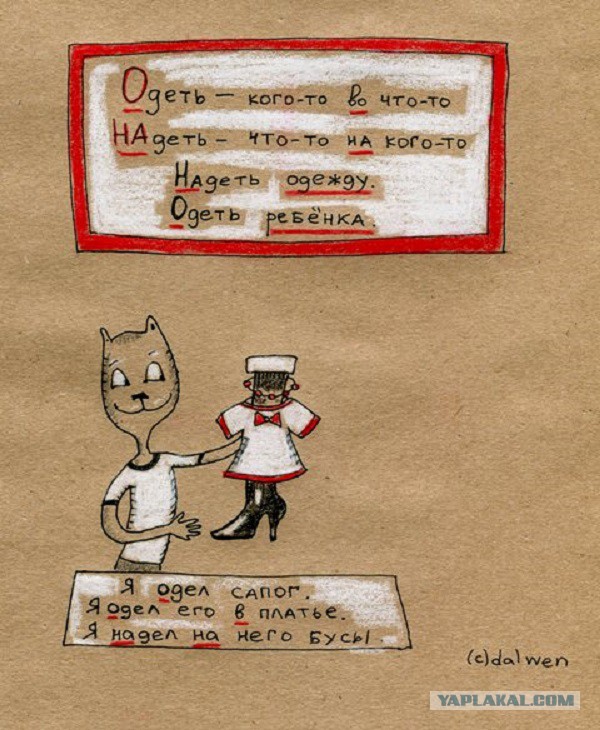 Одеть – кого-то во что-то
НАдеть – что-то на кого-то
Надеть одежду.
Одеть ребёнка.
Я одел сапог.
Я одел его в платье.
Я надел на него бусы.
(c)dalwen
YAPLAKAL.COM